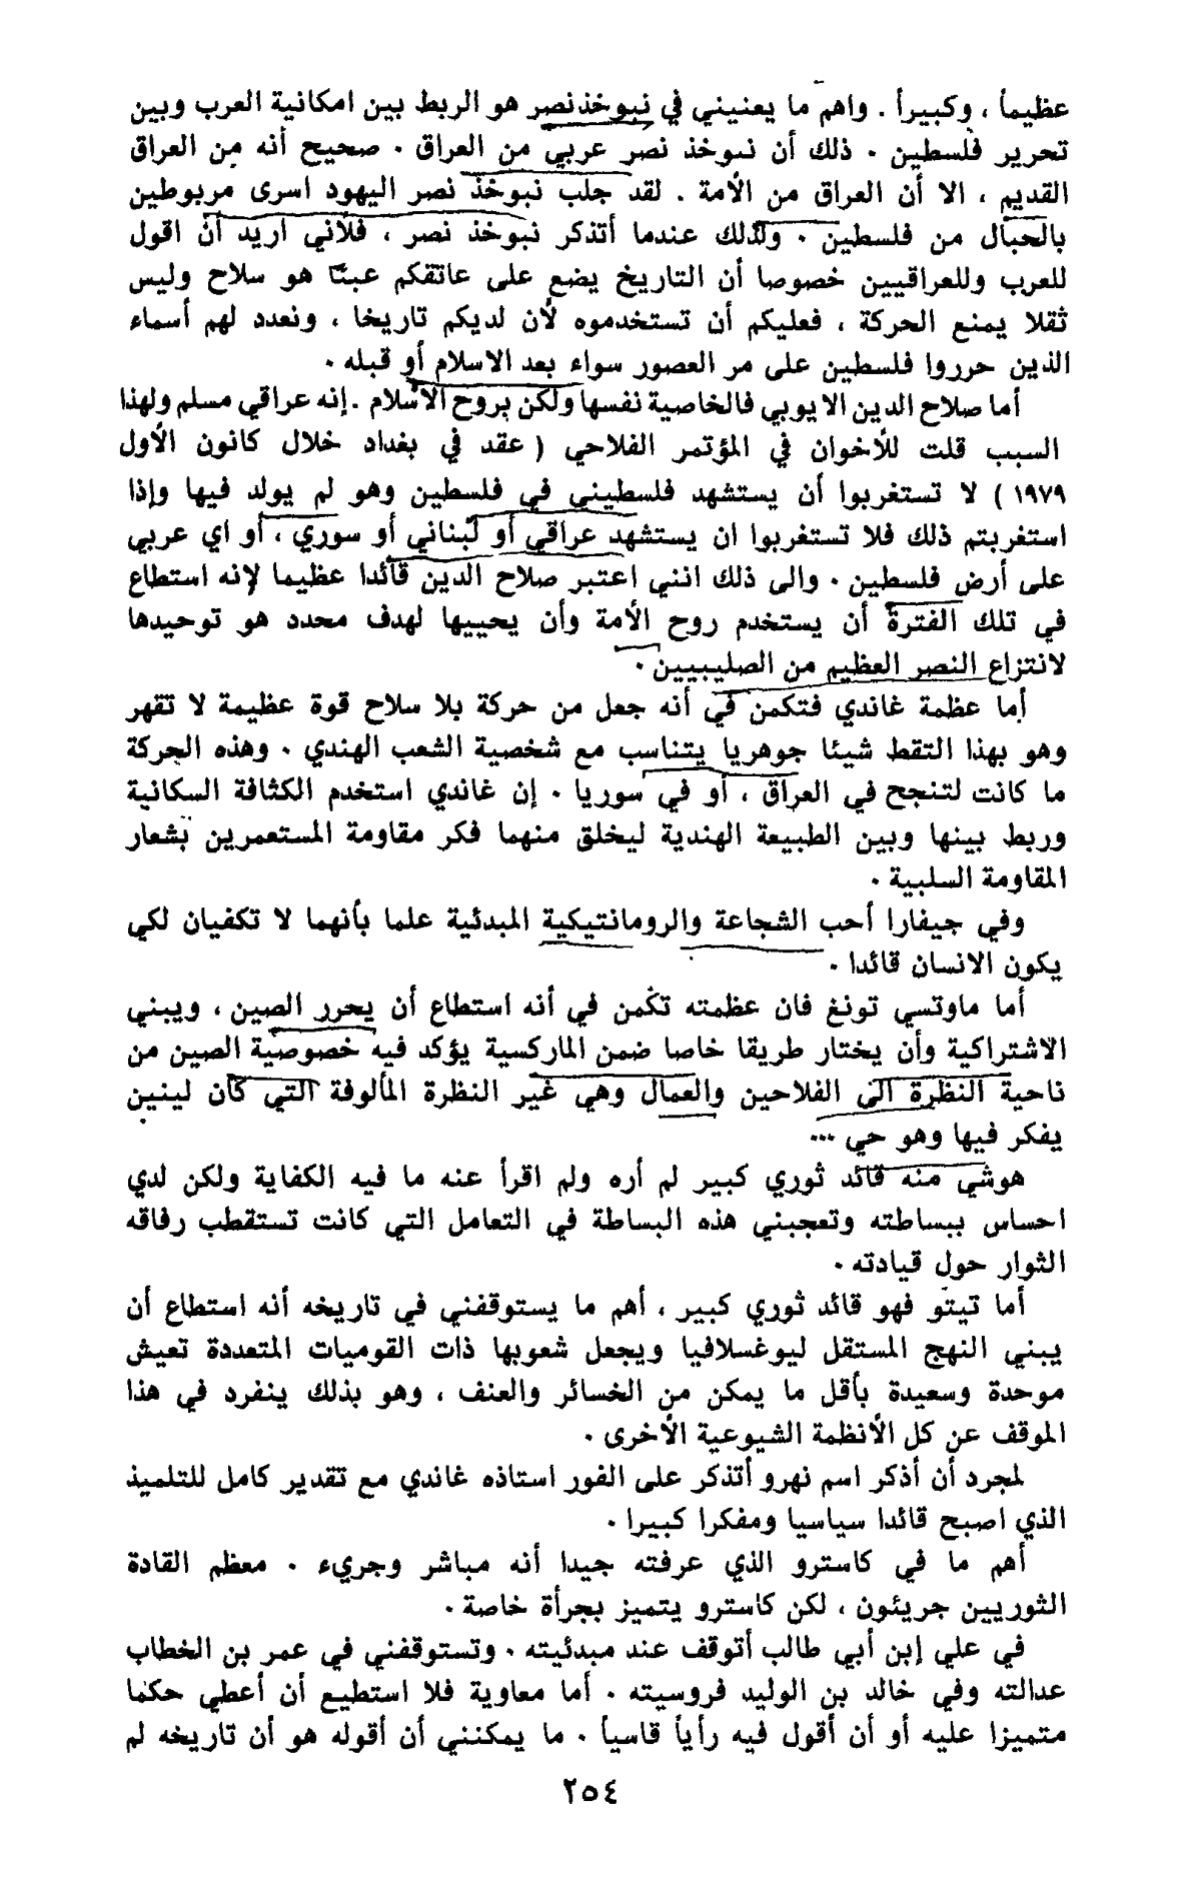 عظيمأ ، وكبيرأ . واهم ما يعنيني في نبوخذنصر هو الربط بين امكانية العرب وبين
تحرير فلسطين . ذلك أن نبوخذ نصر عربي من العراق . صحيح أنه من العراق
القديم ، الا أن العراق من الأمة . لقد جلب نبوخذ نصر اليهود اسرى مربوطين
بالحبال من فلسطين . ولذلك عندما أتذكر نبوخذ نصر ، فلأني اريد أن اقول
للعرب وللعراقيين خصوصا أن التاريخ يضع على عاتقكم عبئا هو سلاح وليس
ثقلا يمنع الحركة ، فعليكم أن تستخدموه لأن لديكم تاريخا ، ونعدد لهم أسماء
الذين حرروا فلسطين على مر العصور سواء بعد الاسلام أو قبله .
أما صلاح الدين الايوبي فالخاصية نفسها ولكن بروح الاسلام . إنه عراقي مسلم ولهذا
السبب قلت للأخوان في المؤتمر الفلاحي ( عقد في بغداد خلال كانون الأول
١٩٧٩ ) لا تستغربوا أن يستشهد فلسطيني في فلسطين وهو لم يولد فيها وإذا
استغربتم ذلك فلا تستغربوا ان يستشهد عراقي أو لبناني أو سوري ، أو اي عربي
على أرض فلسطين . والى ذلك انني اعتبر صلاح الدين قائدا عظيما لإنه استطاع
في تلك الفترة أن يستخدم روح الأمة وأن يحييها لهدف محدد هو توحيدها
لانتزاع النصر العظيم من الصليبيين .
أما عظمة غاندي فتكمن في أنه جعل من حركة بلا سلاح قوة عظيمة لا تقهر
وهو بهذا التقط شيئا جوهريا يتناسب مع شخصية الشعب الهندي . وهذه الحركة
ما كانت لتنجح في العراق ، أو في سوريا . إن غاندي استخدم الكثافة السكانية
وربط بينها وبين الطبيعة الهندية ليخلق منهما فكر مقاومة المستعمرين بشعار
المقاومة السلبية .
وفي جيفارا أحب الشجاعة والرومانتيكية المبدئية علما بأنهما لا تكفيان لكي
يكون الانسان قائدا .
أما ماوتسي تونغ فان عظمته تكمن في أنه استطاع أن يحرر الصين ، ويبني
الاشتراكية وأن يختار طريقا خاصا ضمن الماركسية يؤكد فيه خصوصية الصين من
ناحية النظرة الى الفلاحين والعمال وهي غير النظرة المألوفة التي كان لينين
يفكر فيها وهو حي ...
هوشي منه قائد ثوري كبير لم أره ولم اقرأ عنه ما فيه الكفاية ولكن لدي
احساس ببساطته وتعجبني هذه البساطة في التعامل التي كانت تستقطب رفاقه
الثوار حول قيادته .
أما تيتو فهو قائد ثوري كبير ، أهم ما يستوقفني في تاريخه أنه استطاع أن
يبني النهج المستقل ليوغسلافيا ويجعل شعوبها ذات القوميات المتعددة تعيش
موحدة وسعيدة بأقل ما يمكن من الخسائر والعنف ، وهو بذلك ينفرد في هذا
الموقف عن كل الأنظمة الشيوعية الأخرى .
لمجرد أن أذكر اسم نهرو أتذكر على الفور استاذه غاندي مع تقدير كامل للتلميذ
الذي اصبح قائدا سياسيا ومفكرا كبيرا .
أهم ما في كاسترو الذي عرفته جيدا أنه مباشر وجريء . معظم القادة
الثوريين جريئون ، لكن كاسترو يتميز بجرأة خاصة .
في علي إبن أبي طالب أتوقف عند مبدئيته . وتستوقفني في عمر بن الخطاب
عدالته وفي خالد بن الوليد فروسيته . أما معاوية فلا استطيع أن أعطي حكما
متميزا عليه أو أن أقول فيه رأيأ قاسيأ . ما يمكنني أن أقوله هو أن تاريخه لم
٢٥٤